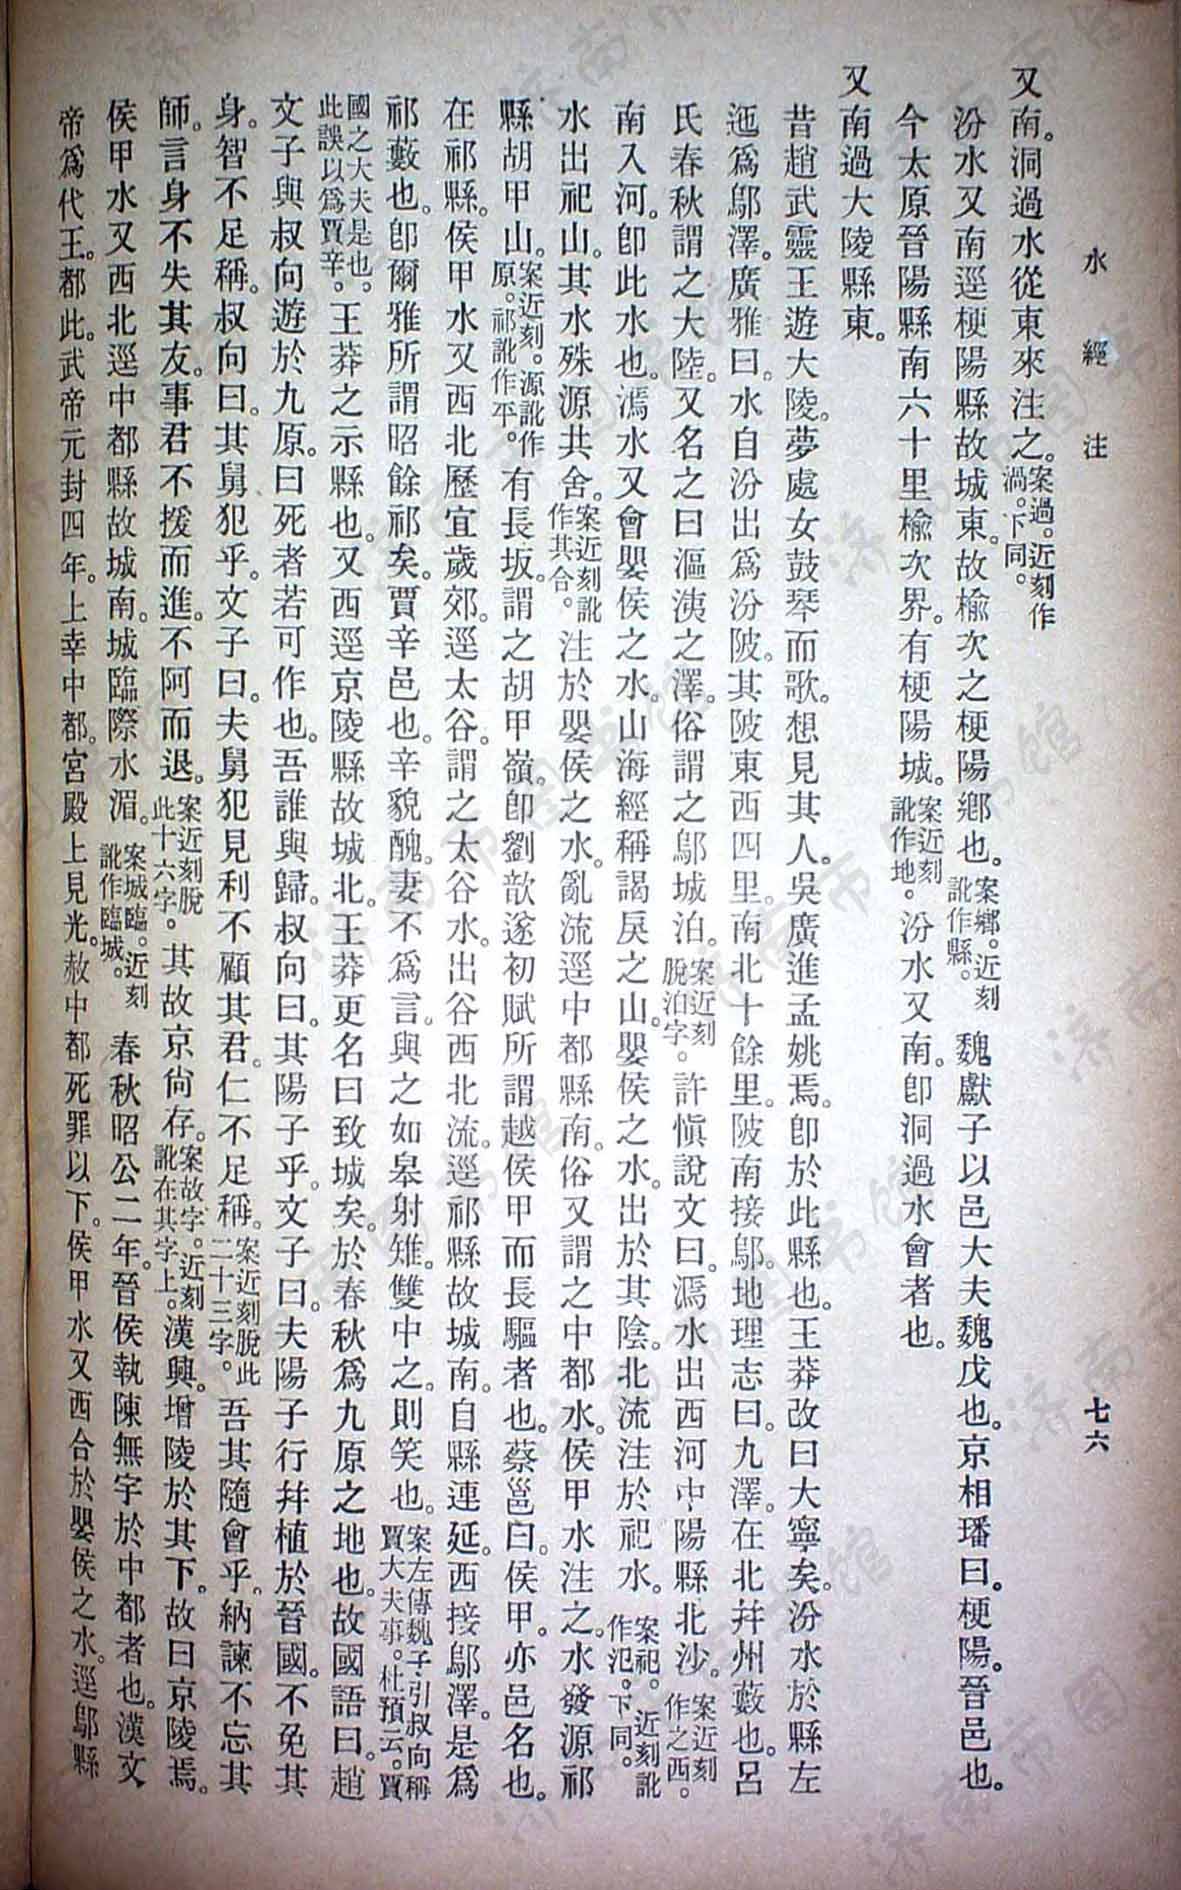 水經注
七六
又南。洞過水從東來注之。案過。近刻作渦。下同。
汾水又南逕梗陽縣故城東。故楡次之梗陽鄉也。案鄉。近刻訛作縣。魏獻子以邑大夫魏戊也。京相璠曰。梗陽。晉邑也。
今太原晉陽縣南六十里楡次界。有梗陽城。案近刻訛作地。汾水又南。卽洞過水會者也。
又南過大陵縣東。
昔趙武靈王遊大陵。夢處女鼓琴而歌。想見其人。吳廣進孟姚焉。卽於此縣也。王莽改曰大寧矣。汾水於縣左
迤爲鄔澤。廣雅曰。水自汾出爲汾陂。其陂東西四里。南北十餘里。陂南接鄔。地理志曰。九澤。在北幷州藪也。呂
氏春秋謂之大陸。又名之曰漚洟之澤。俗謂之鄔城泊。案近刻脫泊字。許愼說文曰。漹水出西河中陽縣北沙。案近刻作之西。
南入河。卽此水也。漹水又會嬰侯之水。山海經稱謁戾之山。嬰侯之水。出於其陰。北流注於祀水。案祀。近刻訛作氾。下同。
水出祀山。其水殊源共舍。案近刻訛作其合。注於嬰侯之水。亂流逕中都縣南。俗又謂之中都水。侯甲水注之。水發源祁
縣胡甲山。案近刻。源訛作原。祁訛作平。有長坂。謂之胡甲嶺。卽劉歆遂初賦所謂越侯甲而長驅者也。蔡邕曰。侯甲。亦邑名也。
在祁縣。侯甲水又西北歷宜歲郊。逕太谷。謂之太谷水。出谷西北流。逕祁縣故城南。自縣連延。西接鄔澤。是爲
祁藪也。卽爾雅所謂昭餘祁矣。賈辛邑也。辛貌醜。妻不爲言。與之如皋射雉。雙中之。則笑也。案左傳魏子引叔向稱賈大夫事。杜預云。賈
國之大夫是也。此誤以爲賈辛。王莽之示縣也。又西逕京陵縣故城北。王莽更名曰致城矣。於春秋爲九原之地也。故國語曰。趙
文子與叔向遊於九原。曰死者若可作也。吾誰與歸。叔向曰。其陽子乎。文子曰。夫陽子行幷植於晉國。不免其
身。智不足稱。叔向曰。其舅犯乎。文子曰。夫舅犯見利不顧其君。仁不足稱。案近刻脫此二十三字。吾其隨會乎。納諫不忘其
師。言身不失其友。事君不援而進。不阿而退。案近刻脫此十六字。其故京尙存。案故字。近刻訛在其字上。漢興。增陵於其下。故曰京陵焉。
侯甲水又西北逕中都縣故城南。城臨際水湄。案城臨。近刻訛作臨城。春秋昭公二年。晉侯執陳無宇於中都者也。漢文
帝爲代王。都此。武帝元封四年。上幸中都。宮殿上見光。赦中都死罪以下。侯甲水又西合於嬰侯之水。逕鄔縣